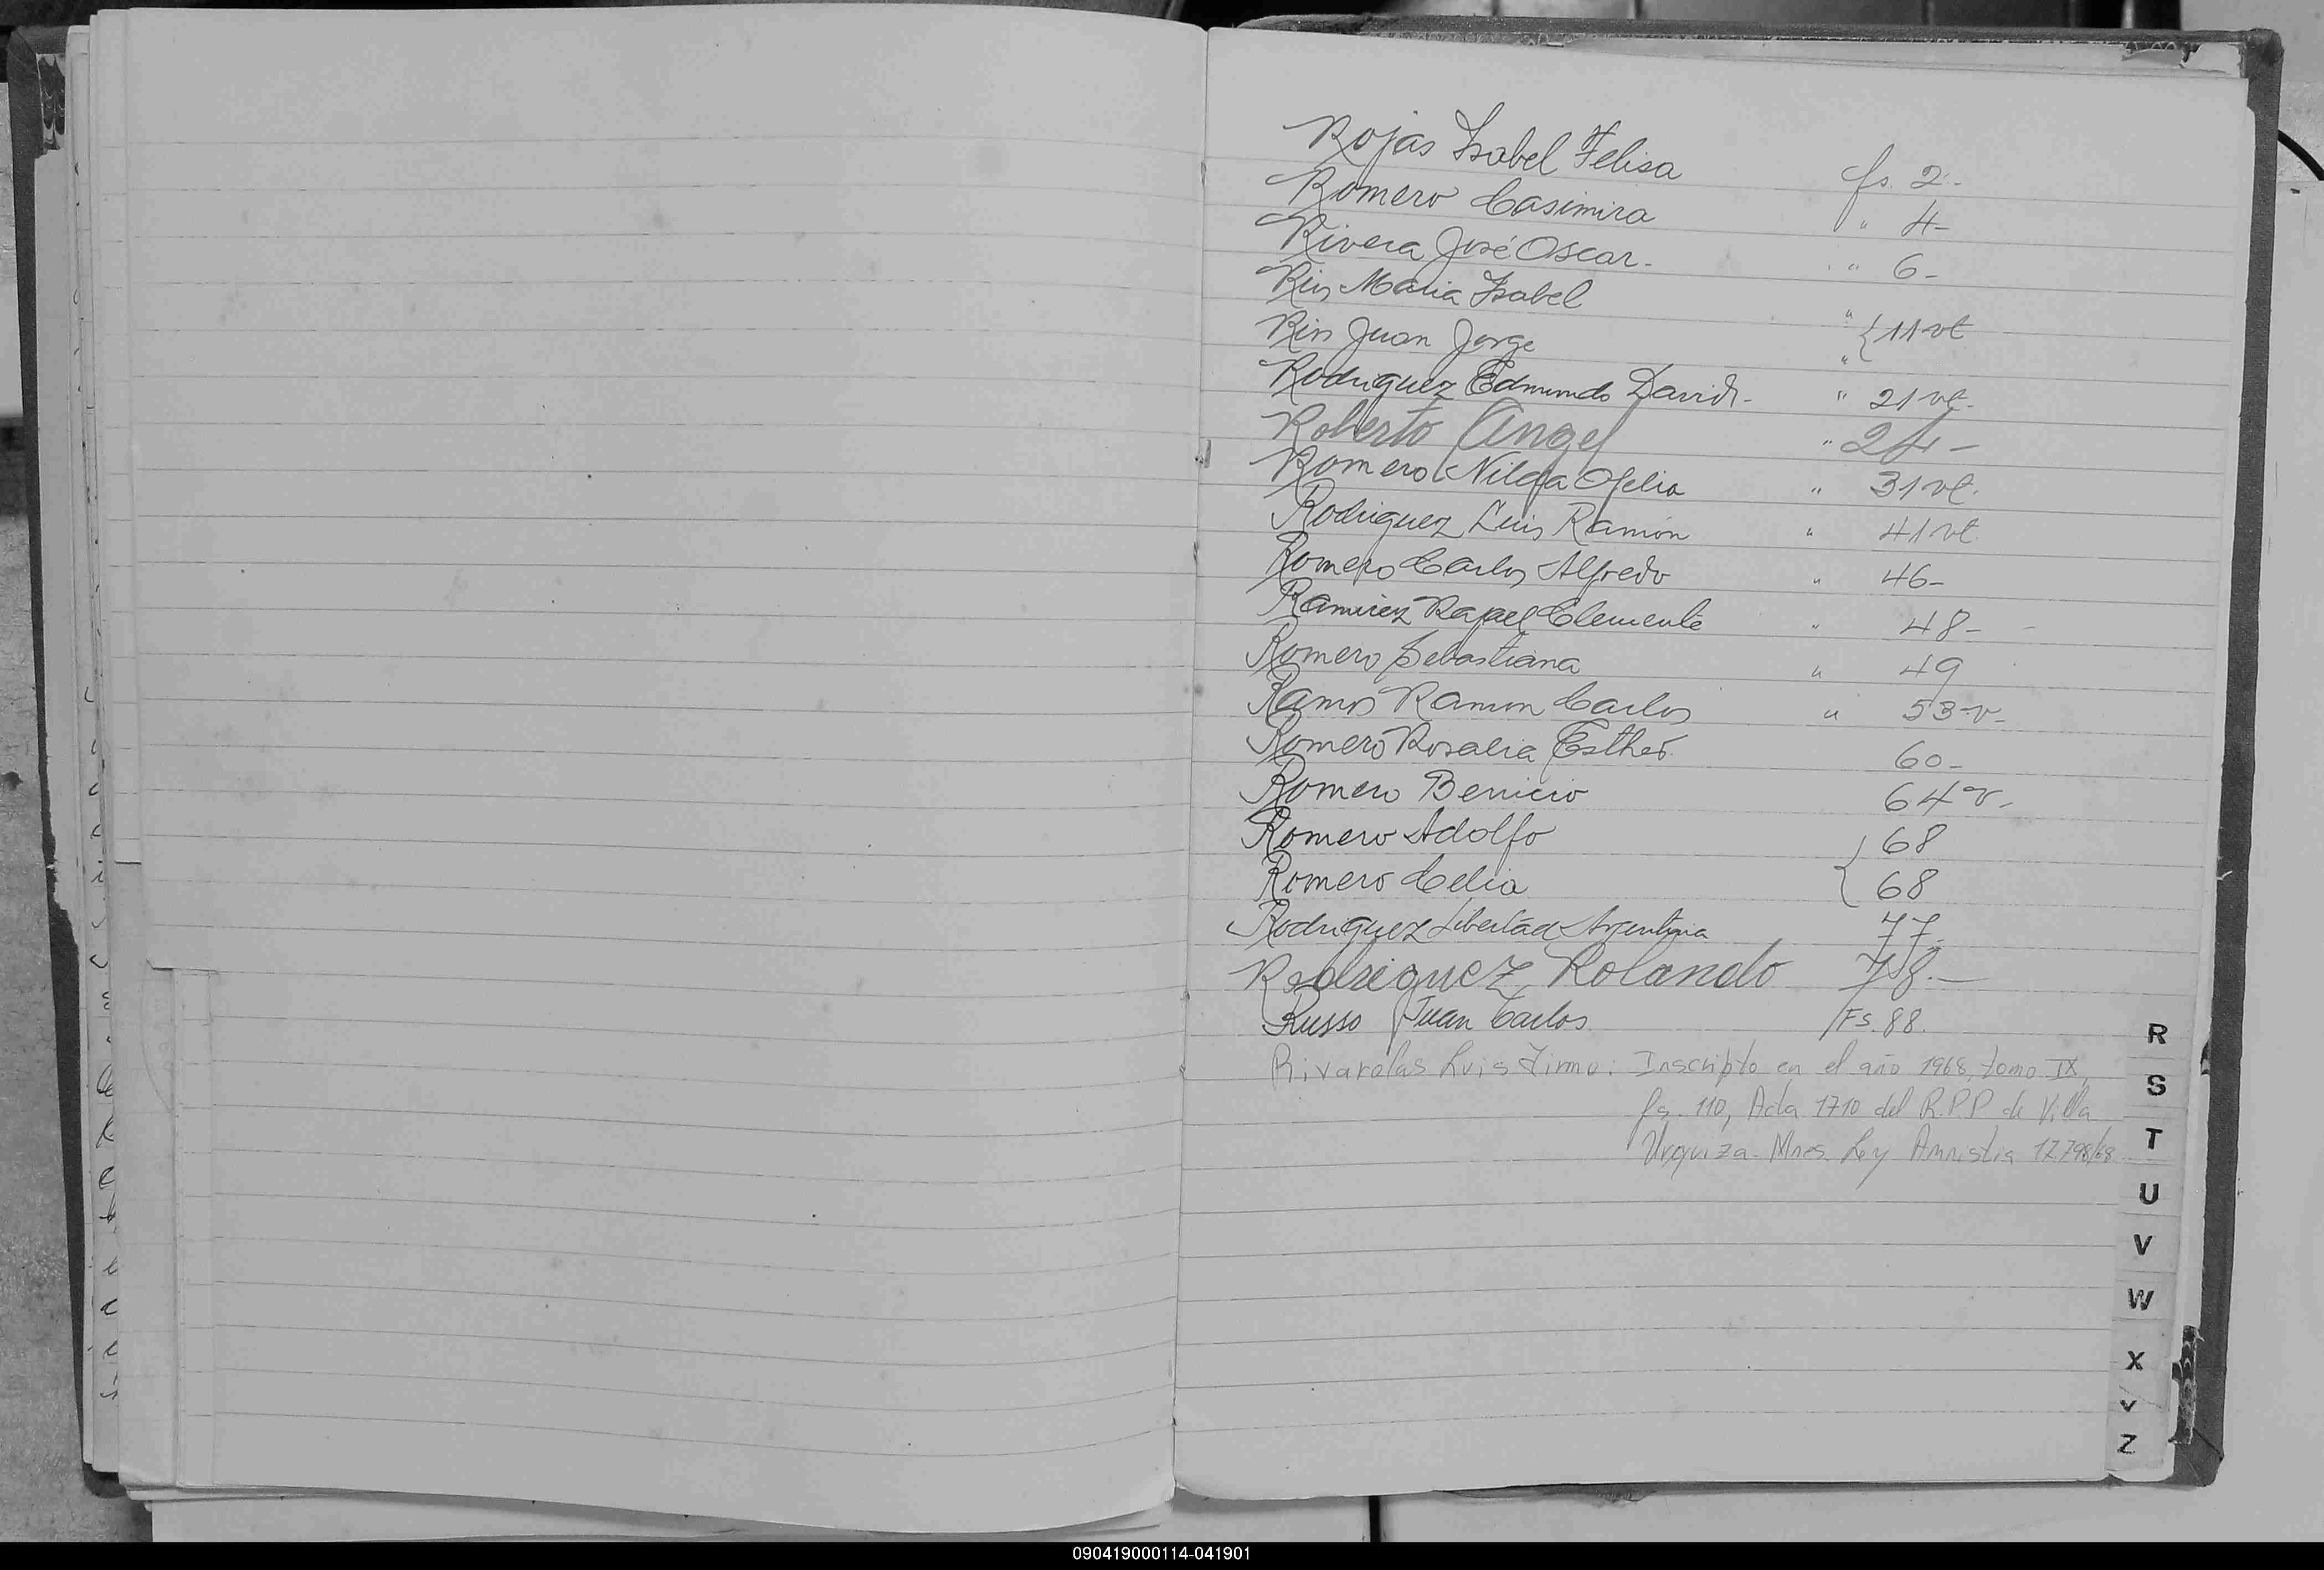 Rojas Isabel Felisa fs. 2-
Romero Casimira " 4-
Rivera José Oscar- " 6-
Rios Maria Isabel "
{ 11 vt
Rios Juan Jorge "
Rodriguez Edmundo David- " 21 vt.
Roberto Angel " 24-
Romero Nilda Ofelia " 31 vt.
Rodriguez Luis Ramón " 41 vt.
Romero Carlos Alfredo " 46-
Ramirez Rafael Clemente " 48-
Romero Sebastiana " 49
Ramos Ramon Carlos " 53 v-
Romero Rosalia Esther 60-
Romero Benicio 64 v-
Romero Adolfo { 68
Romero Celia 68
Rodriguez Libertad Argentina 77-
Rodriguez, Rolando 78.-
Russo Juan Carlos Fs. 88.
Rivarolas Luis Firmo: Inscripto en el año 1968, tomo IX,
fs. 110, Acta 1710 del R.P.P de Villa
Urquiza- Mnes. Ley Amnistia 17.798/68
R
S
T
U
V
W
X
Y
Z
090419000114-041901